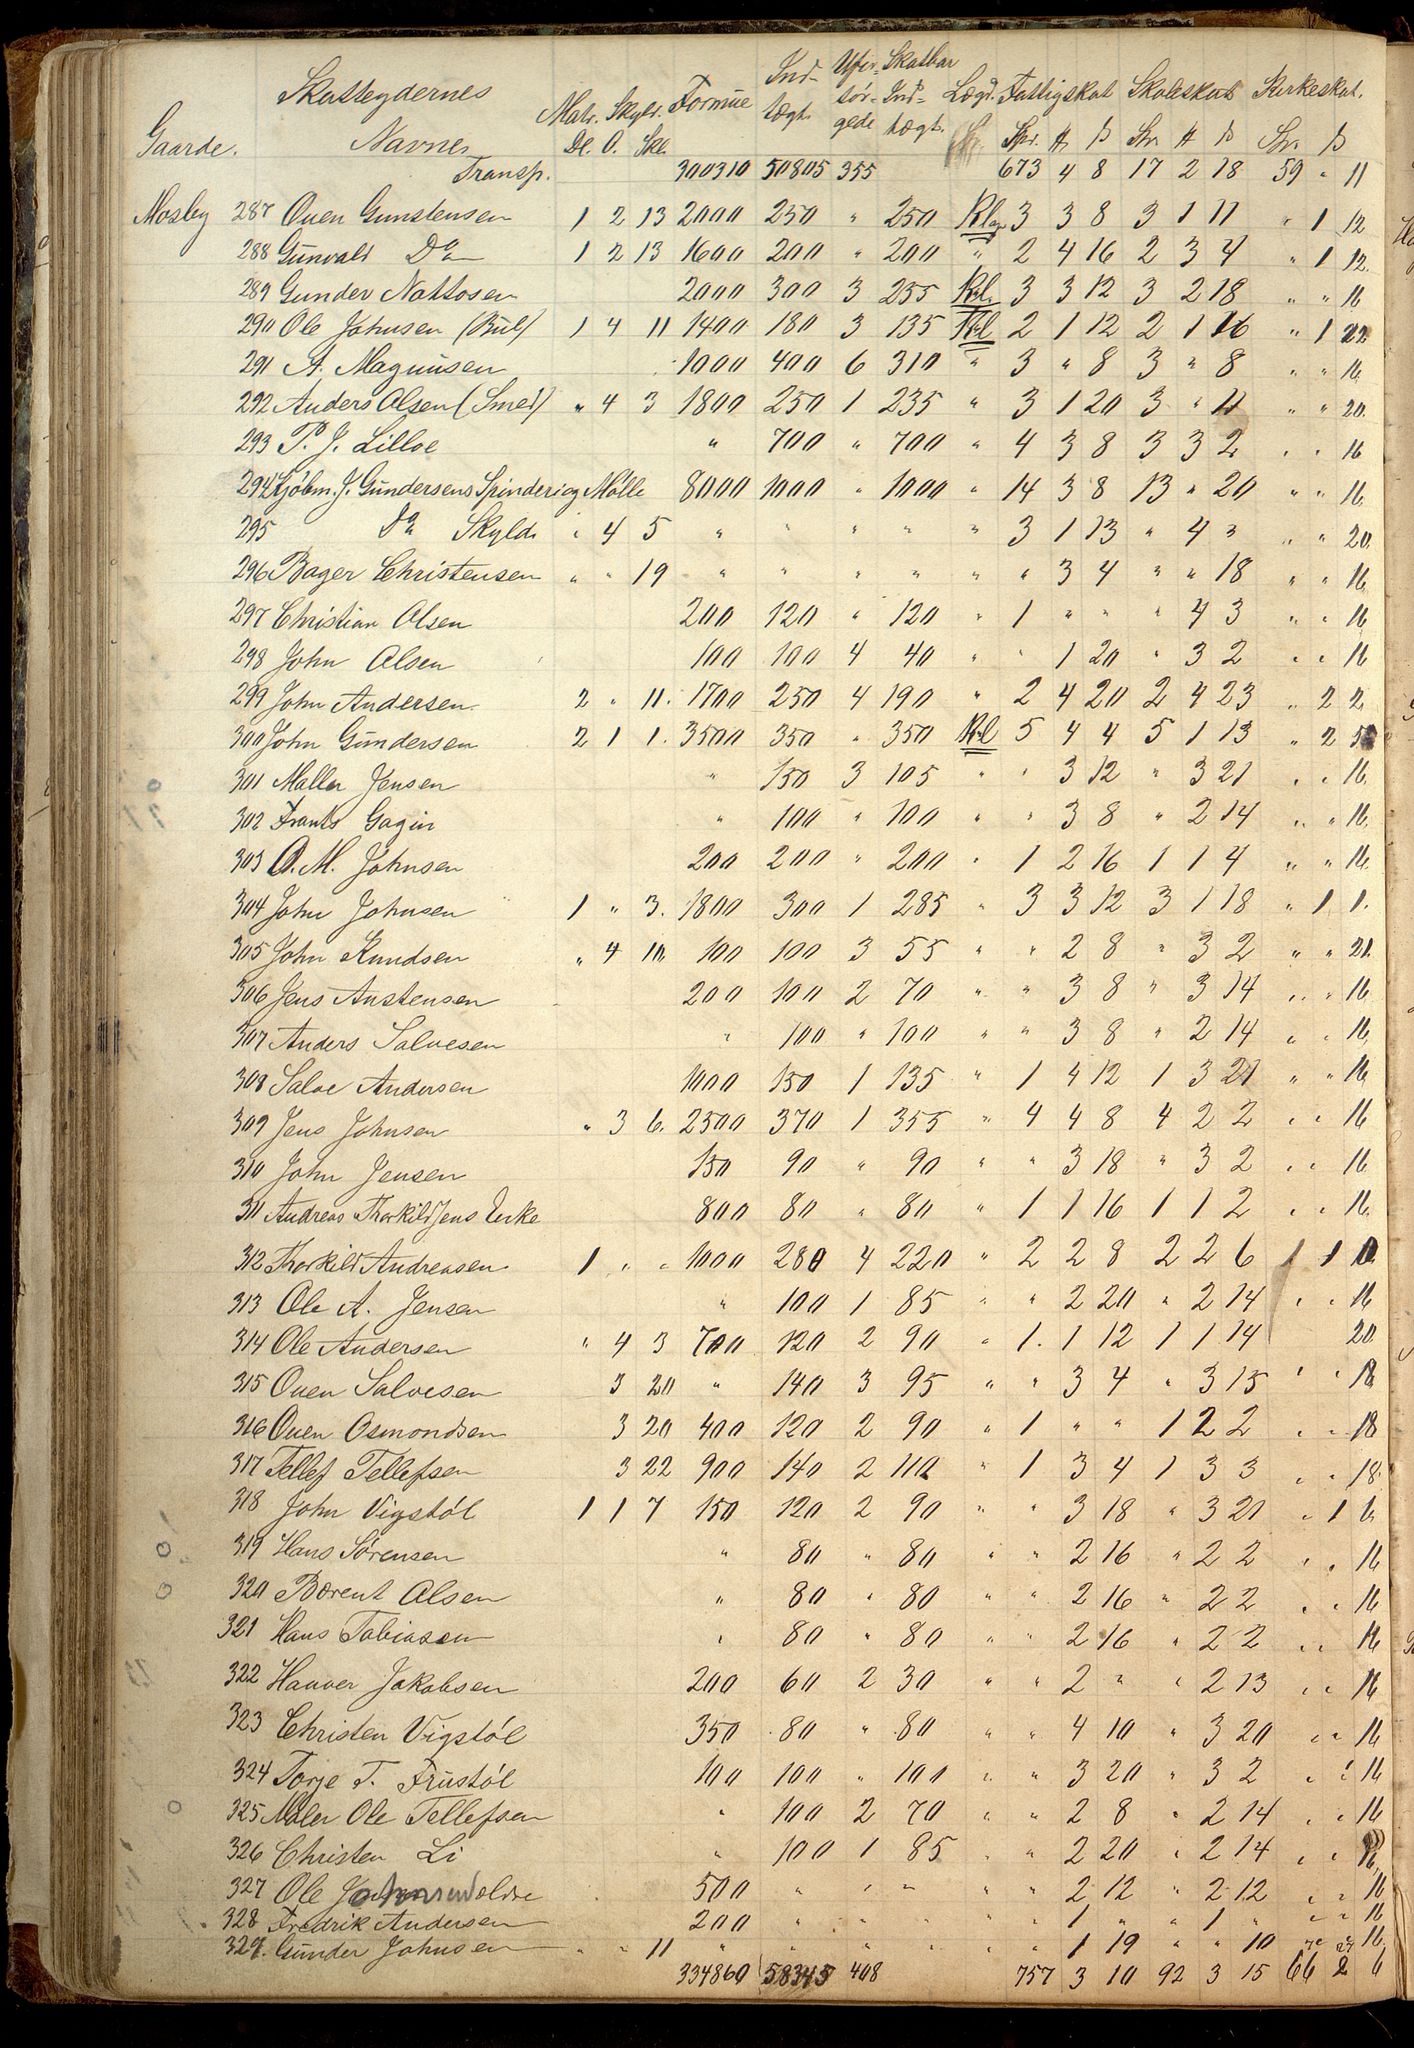 Gaarde. Skatteydernes Navne. Matr. Skyld. Dl. O. Skl. Formue Ind- tægt. Ufor- sør- gede Skatbar Ind- tægt. Lægd. Fattigskat Skoleskat Kirkeskat.
Spr. ₶ ß Spr. ₶ ß Spr. ß
Transp. 300310 50805 355 673 4 8 17 2 18 59 " 11
Mosby 287 Ouen Gunstensen 1 2 13 2000 250 " 250 3 3 8 3 1 11 " 1 12
288 Gunvald Do 1 2 13 1600 200 " 200 " 2 4 16 2 3 4 " 1 12.
289 Gunder Nattosen 2000 300 3 255 Rl. 3 3 12 3 2 18 " " 16
290 Ole Johnsen (Bul) 1 4 11 1400 180 3 135 Rl 2 1 12 2 1 16 " 1 22
291 A. Magnusen 1000 400 6 310 " 3 " 8 3 " 8 " " 16
292 Anders Olsen (Smed) " 4 3 1800 250 1 235 " 3 1 20 3 " 11 " " 20.
293 P. J. Lilloe " 700 " 700 " 4 3 8 3 3 2 " " 16
294 Kjøbm. J. Gundersens Spinderi og Mølle 8000 1000 " 1000 " 14 3 8 13 " 20 " " 16
295 Do Skyld. " 4 5 " " " " " 3 1 13 " 4 " " " 20.
296 Bager Christensen " " 19 " " " " " " 3 4 " " 18 " " 16
297 Christian Olsen 200 120 " 120 " 1 " " " 4 3 " " 16
298 John Olsen 100 100 4 40 " " 1 20 " 3 2 " " 16
299 John Andersen 2 " 11. 1700 250 4 190 " 2 4 20 2 4 23 " 2 2
300 John Gundersen 2 1 1. 3500 350 " 350 Rl 5 4 4 5 1 13 " 2 5
301 Maller Jensen " 150 3 105 " " 3 12 " 3 21 " " 16
302 Frants Gagin " 100 " 100 " " 3 8 " 2 14 " " 16
303 O. M. Johnsen 200 200 " 200 " 1 2 16 1 1 4 " " 16
304 John Johnsen 1 " 3. 1800 300 1 285 " 3 3 12 3 1 18 " 1 1.
305 John Knudsen " 4 10. 100 100 3 55 " " 2 8 " 3 2 " " 21.
306 Jens Austensen 200 100 2 70 " " 3 8 " 3 14 " " 16
307 Anders Salvesen " 100 " 100 " " 3 8 " 2 14 " " 16
308 Salve Andersen 1000 150 1 135 " 1 4 12 1 3 21 " " 16
309 Jens Johnsen " 3 6. 2500 370 1 355 " 4 4 8 4 2 2 " " 16
310 John Jensen 150 90 " 90 " " 3 18 " 3 2 " " 16
311 Andreas Thorkildsens Enke 800 80 " 80 " 1 1 16 1 1 2 " " 16
312 Thorkild Andreasen 1 " " 1000 280 4 220 " 2 2 8 2 2 6 1 1 0
313 Ole A. Jensen " 100 1 85 " " 2 20 " 2 14 " " 16
314 Ole Andersen " 4 3 700 120 2 90 " 1. 1 12 1 1 14 20
315 Ouen Salvesen 3 20 " 140 3 95 " " 3 4 " 3 15 " " 18
316 Ouen Osmondsen 3 20 400 120 2 90 " 1 " " 1 2 2 " " 18
317 Tellef Tellefsen 3 22 900 140 2 110 " 1 3 4 1 3 3 " " 18
318 John Vigstøl 1 1 7 150 120 2 90 " " 3 18 " 3 20 " 1 6.
319 Hans Sørensen " 80 " 80 " " 2 16 " 2 2 " " 16
320 Berent Olsen " 80 " 80 " " 2 16 " 2 2 " " 16
321 Hans Tobiasen " 80 " 80 " " 2 16 " 2 2 " " 16
322 Hanver Jakobsen 200 60 2 30 " " 2 " " 2 13 " " 16
323 Christen Vigstøl 350 80 " 80 " " 4 10 " 3 20 " " 16
324 Torje T. Frustøl 100 100 " 100 " " 3 20 " 3 2 " " 16
325 Maler Ole Tellefsen " 100 2 70 " " 2 8 " 2 14 " " 16
326 Christen Li " 100 1 85 " " 2 20 " 2 14 " " 16
327 Ole 500 " " " " " 2 12 " 2 12 " " 16
328 Fredrik Andersen 200 " " " " " 1 " " 1 " " " 16
329. Gunder Johnsen " " 11 " " " " " " 1 19 " " 10 16
334860 58345 408 757 3 10 92 3 15 66 2 6